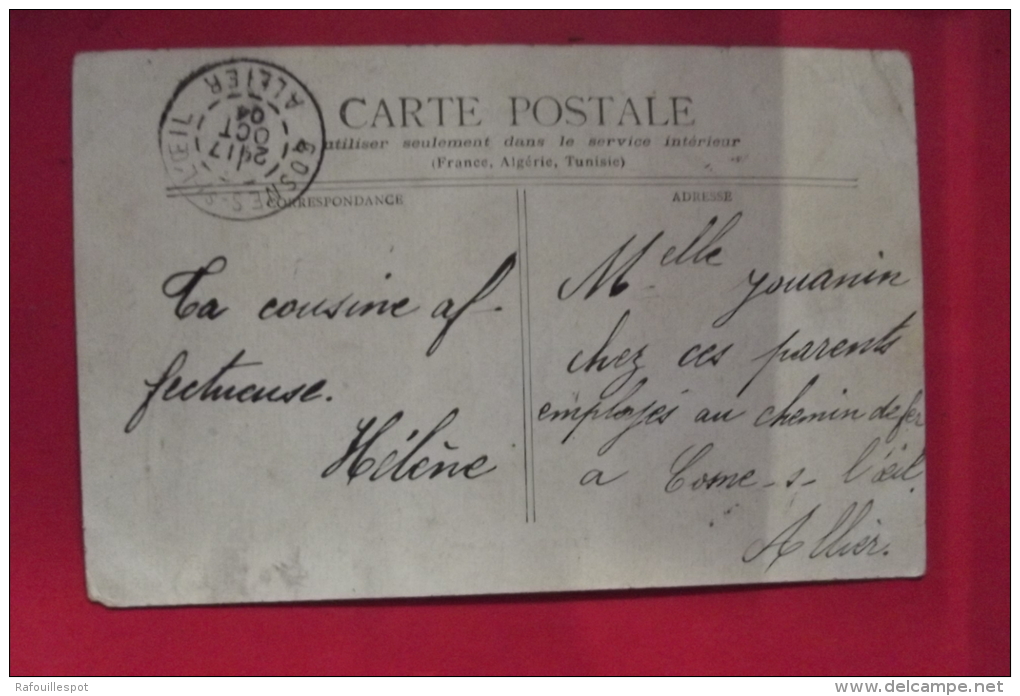 CARTE POSTALE
utiliser seulement dans le service intérieur
(France, Algérie, Tunisie)
COSNES-S-L'ŒIL
ALLIER
17
24
OCT
04
CORRESPONDANCE
Ta cousine af-
fectueuse.
Hélène
ADRESSE
Melle Jouanin
chez ces parents
employés au chemin de fer
a Cosne-s-l'œil
Allier.
Rafouillespot
delcampe.net